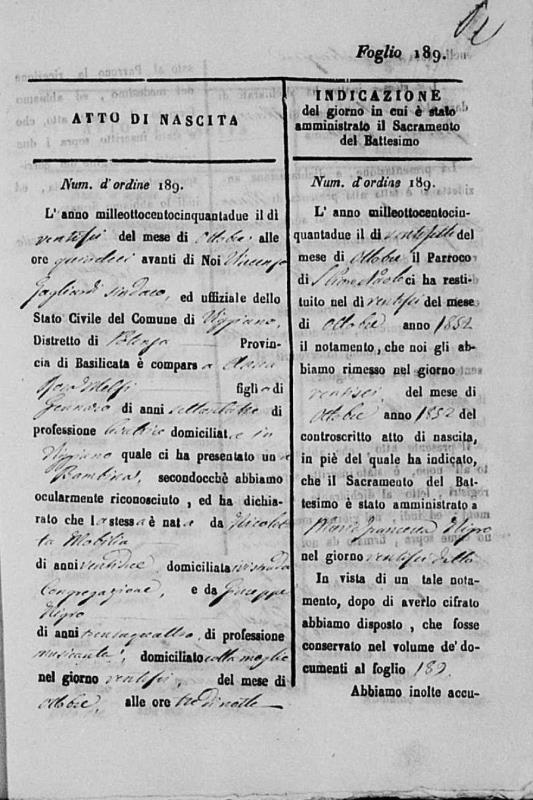 Foglio 189.
ATTO DI NASCITA
Num. d'ordine 189.
L' anno milleottocentocinquantadue il dì
ventisei del mese di Ottobre alle
ore quindici avanti di Noi Vincenzo
Gagliardi sindaco, ed uffiziale dello
Stato Civile del Comune di Viggiano,
Distretto di Potenza Provin-
cia di Basilicata è comparsa Anna
Rosa Melfi figlia di
Gennaro di anni settantatre di
professione levatrice domiciliata in
Viggiano quale ci ha presentato una
Bambina, secondocchè abbiamo
ocularmente riconosciuto, ed ha dichia-
rato che la stessa è nata da Nicolet-
ta Mobilia
di anni ventidue, domiciliata in strada
Congregazione, e da Giuseppe
Nigro
di anni trentaquattro, di professione
musicante, domiciliato colla moglie
nel giorno ventisei, del mese di
Ottobre, alle ore tre di notte
INDICAZIONE
del giorno in cui è stato
amministrato il Sacramento
del Battesimo
Num. d'ordine 189.
L' anno milleottocentocin-
quantadue il dì ventisette del
mese di Ottobre il Parroco
di ci ha resti-
tuito nel dì ventisei del mese
di Ottobre anno 1852
il notamento, che noi gli ab-
biamo rimesso nel giorno
ventisei del mese di
Ottobre anno 1852 del
controscritto atto di nascita,
in piè del quale ha indicato,
che il Sacramento del Bat-
tesimo è stato amministrato a
Maria Francesca Nigro
nel giorno ventisei detto
In vista di un tale nota-
mento, dopo di averlo cifrato
abbiamo disposto, che fosse
conservato nel volume de' do-
cumenti al foglio 189.
Abbiamo inolte accu-